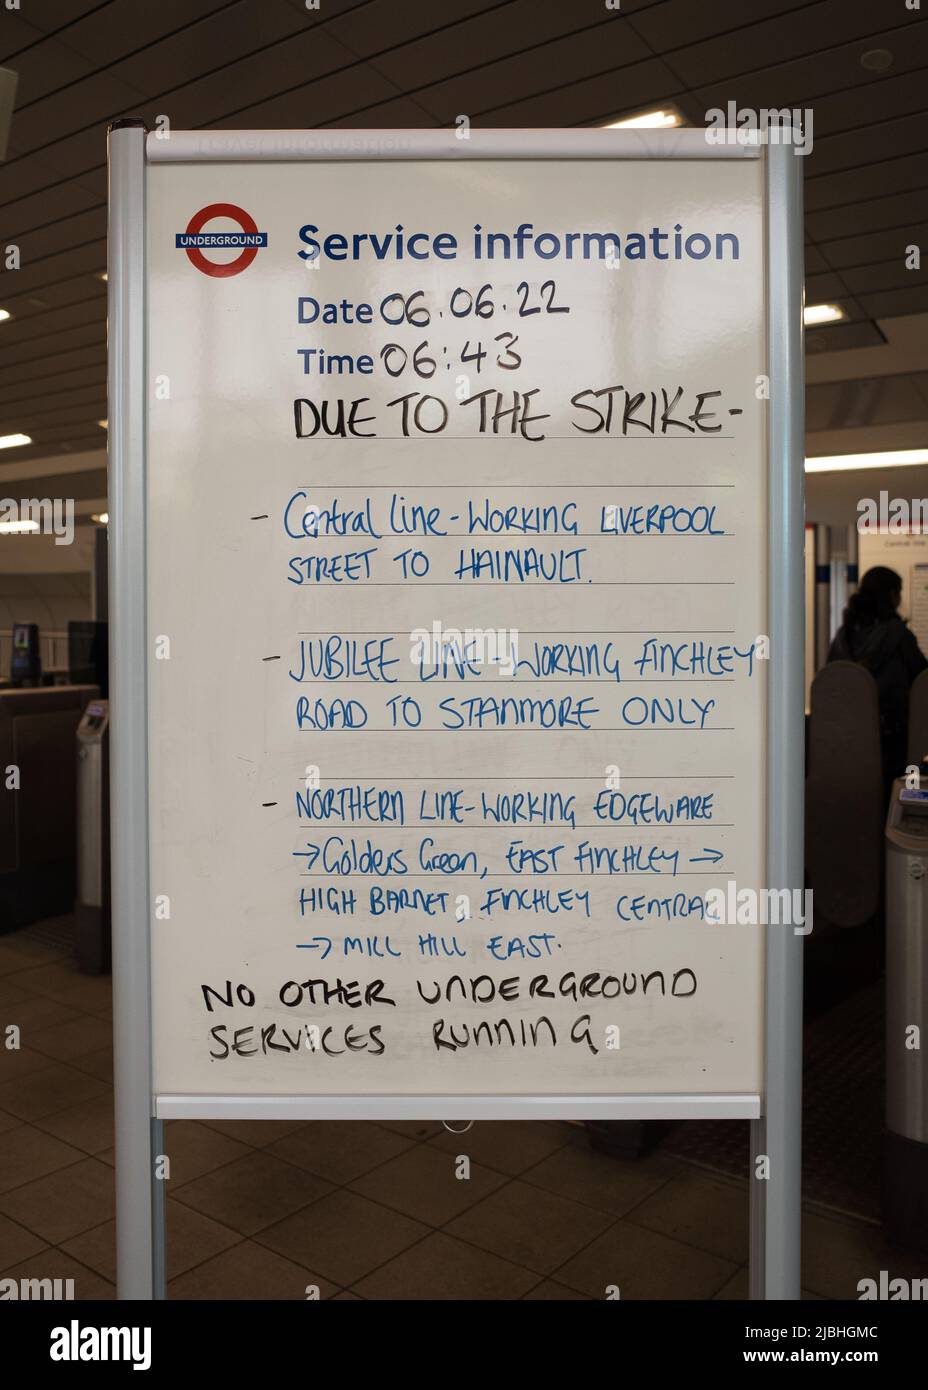 UNDERGROUND
Service information
Date 06.06.22
Time 06:43
DUE TO THE STRIKE-
- Central line - WORKING LIVERPOOL
STREET TO HAINAULT.
- JUBILEE LINE - WORKING FINCHLEY
ROAD TO STANMORE ONLY
- NORTHERN LINE - WORKING EDGEWARE
→ Golders Green, EAST FINCHLEY →
HIGH BARNET, FINCHLEY CENTRAL
→ MILL HILL EAST.
NO OTHER UNDERGROUND
SERVICES RUNNING
alamy
Image ID: 2JBHGMC
www.alamy.com